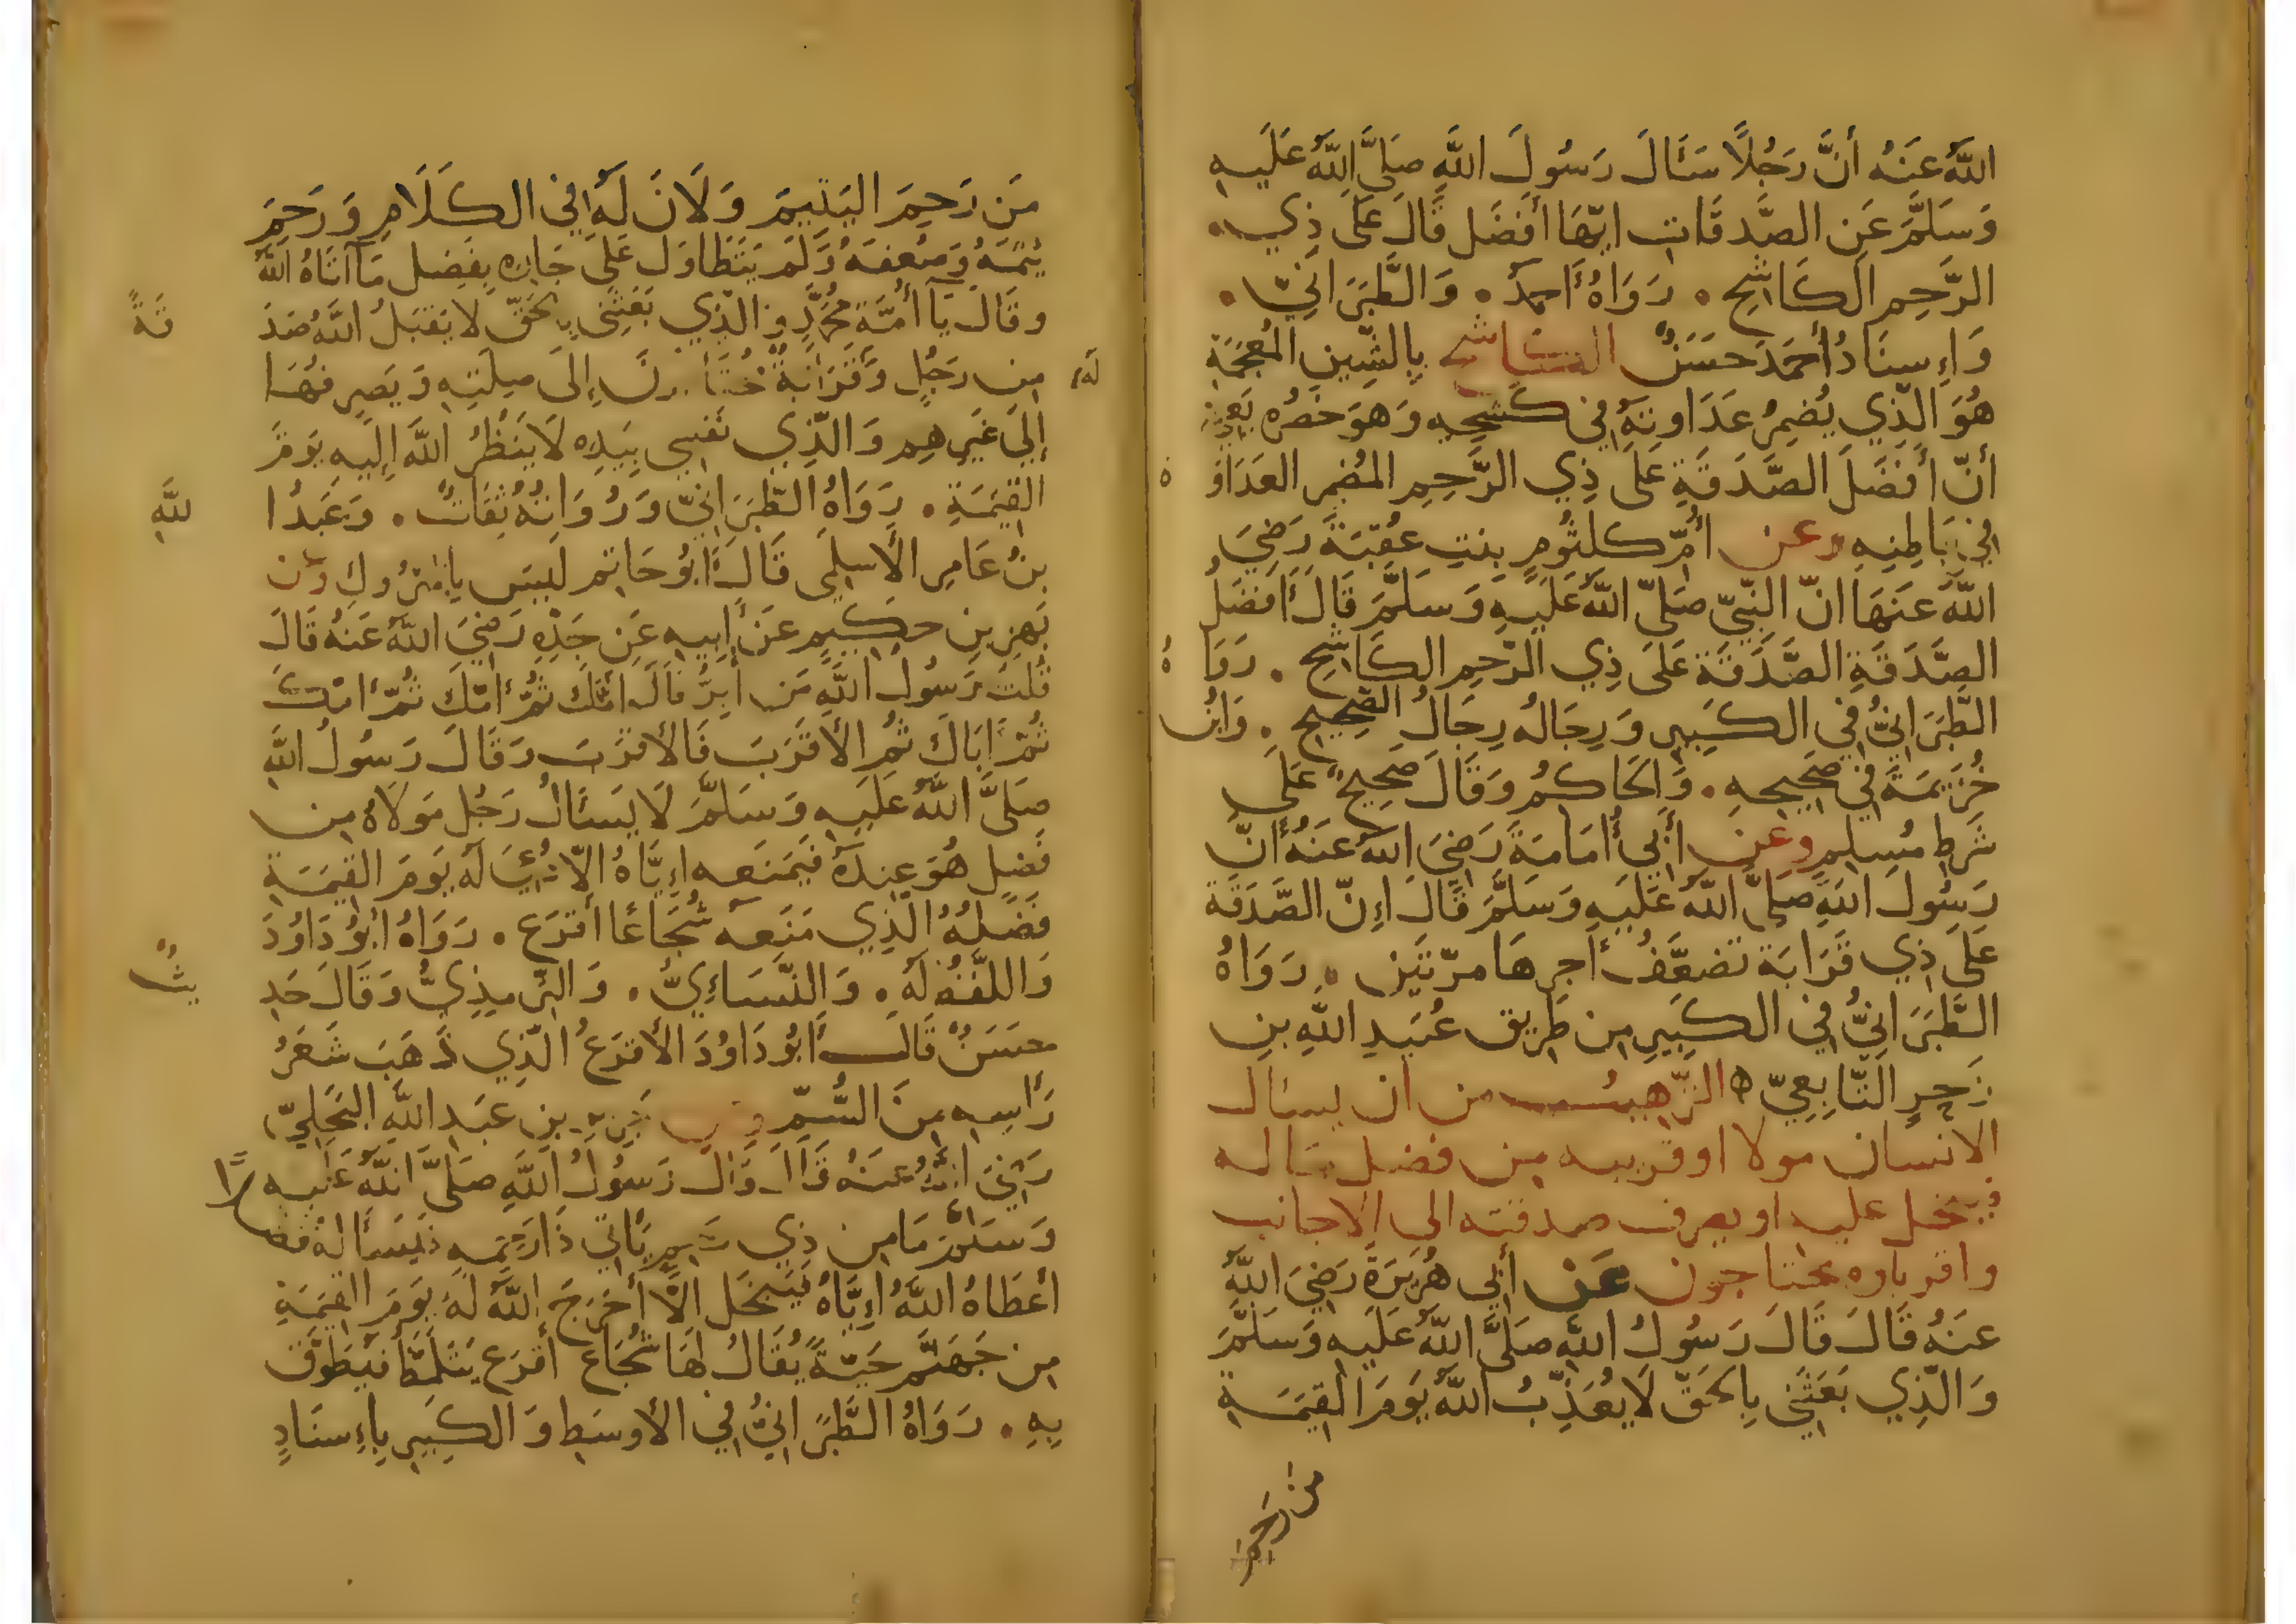 اللَّهُ عَنَهُ أَنَّ رَجُلًا سَئَالَ رَسُولَ اللَّهِ صَلَّى اللَّهُ عَلَيهِ
وَسَلَّمَ عَنِ الصَّدقَاتِ ايّهَا أَفضَل قَالَ عَلَى ذِي
الرَّحِمِ الكَاشِحِ . رَوَاهُ أَحمَدُ . وَالطَّبَرَانِيّ .
وَاءِسنَادُ أَحمَدَ حَسَنٌ الكاشح بِالشِّينِ المُعجَمَةِ
هُوَ الَّذِي يُضمِرُ عَدَاوتَهُ فِي كَشحِهِ وَهوَ خَصرُه يَعنِي
أنّ أَفضَلَ الصَّدَقَةِ عَلَى ذِي الرَّحِمِ المُضمِرِ العَدَاوَ ة
فِي بَاطِنِهِ وعن أُمّ كلثُومٍ بنتِ عُقبَةَ رَضِيَ
اللَّهُ عَنهَا انّ النَّبِيّ صَلَّى اللَّهُ عَلَيهِ وَسَلَّمَ قَالَ أَفضَلُ
الصَّدَقَةِ الصَّدَقَة عَلَى ذِي الرَّحِمِ الكَاشِحِ . رَوَا هُ
الطَّبَرَانِيُّ فِي الكَبِيرِ وَرِجَالُه رِجَالُ الصَّحِيحِ . وَابنُ
خُزَيمَةَ فِي صَحِيحِهِ . وَالحَاكمُ وَقَالَ صَحِيحٌ عَلَى
شَرطِ مُسلِمٍ وعن أَبِي أُمَامَةَ رَضِيَ اللَّهُ عَنهُ أَنّ
رَسُولَ اللَّهِ صَلَّى اللَّهُ عَلَيهِ وَسَلَّمَ قَالَ اءِنّ الصَّدَقَة
عَلَى ذِي قَرَابَة تضعَّفُ أَجرهَا مرّتَين . رَوَاهُ
الطَّبَرَانِيُّ فِي الكَبِيرِ مِن طَرِيق عُبَيدِ اللَّهِ بنِ
زَحرٍ التَّابِعِيّ ه الترهيب من ان يسال
الانسان مولاا او قريبه من فضل ماله
فيبخل عليه او يصرف صدقته الى الاجانب
واقرباوه محتاجون عَن أَبِي هُرَيرَةَ رَضِيَ اللَّهُ
عَنهُ قَالَ قَالَ رَسُولُ اللَّهِ صَلَّى اللَّهُ عَلَيهِ وَسَلَّمَ
وَالَّذِي بَعَثَنِي بِالحَقّ لَا يُعَذِّبُ اللَّهُ يَومَ القِيَمَةِ
من رَحِمَ
مَن رَحِمَ اليَتِيمَ وَلَانَ لَهُ فِي الكَلَامِ وَرَحِمَ
يُتمَهُ وَضعفَهُ وَلَم يَتَطَاوَل عَلَى جَارِه بِفَضل مَا آتَاهُ اللَّهُ
وقَالَ يَا أُمَّةَ مُحَمَّدٍ وَالَّذِي بَعَثَنِي بِالحَقّ لا يَقبَلُ اللَّهُ صَدَ قَةً
مِن رَجُلٍ وَلَهُ قَرَابَةٌ مُحتَاجُونَ إِلَى صِلَتِهِ وَيَصرِفُهَا
إِلَى غَيرِهِم وَالَّذِي نَفسِي بِيَدِه لَا يَنظُرُ اللَّهُ إِلَيهِ يَومَ
القِيَمَةِ . رَوَاهُ الطَّبَرَانِيّ وَرُوَاتُهُ ثِقَاتٌ . وَعَبدُ ا للَّهِ
بنُ عَامِرٍ الأَسلَمِي قَالَ أَبُو حَاتِم لَيسَ بِالمَترُوكِ وعن
بَهزِ بنِ حَكِيمٍ عَن أَبِيهِ عَن جَدِّهِ رَضِيَ اللَّهُ عَنهُ قَالَ
قُلتُ رَسُولَ اللَّهِ مَن أَبِرُّ قَالَ امَّكَ ثُمّ أُمّكَ ثُمّ أُمّكَ
ثُمّ أَبَاكَ ثُمّ الأَقرَبَ فَالأَقرَبَ وَقَالَ رَسُولُ اللَّهِ
صَلَّى اللَّهُ عَلَيهِ وَسَلَّمَ لَا يَسئَالُ رَجُل مَولَاهُ مِن
فَضلٍ هُوَ عِندَهُ فَيَمنَعه اءِيَّاهُ الاّ دُعِيَ لَهُ يَومَ القِيَمَةِ
فَضلُهُ الَّذِي مَنَعه شُجَاعًا أَقرَع . رَوَاهُ أَبُو دَاوُدَ
وَاللَّفظُ لَهُ . وَالنَّسَاءِيُّ . وَالتِّرمِذِيُّ وَقَالَ حَدِ يثٌ
حَسَنٌ قَالَ أَبُو دَاوُدَ الأَقرَعُ الَّذِي ذَهَبَ شَعَرُ
رَأسِه مِنَ السُّمِّ وعن جَرِيرِ بنِ عَبدِ اللَّهِ البَجَلِيّ
رَضِيَ اللَّهُ عَنهُ قَالَ قَالَ رَسُولُ اللَّهِ صَلَّى اللَّهُ عَلَيهِ
وَسَلَّمَ مَا مِن ذِي رَحِمٍ يَأتِي ذَا رَحِمِهِ فَيَسَأَلهُ فضلًا
أَعطَاهُ اللَّهُ اءِيَّاهُ فَيَبخَل الاَّ أَخرَجَ اللَّهُ لَهُ يَومَ القِيَمَةِ
مِن جَهَنَّم حَيَّةً يُقَالُ لَهَا شُجَاع أَقرَع يَتَلَمَّظُ فَيُطَوَّقُ
بِهِ . رَوَاهُ الطَّبَرَانِيُّ فِي الأَوسَطِ وَالكَبِيرِ بِاءِسنَادٍ